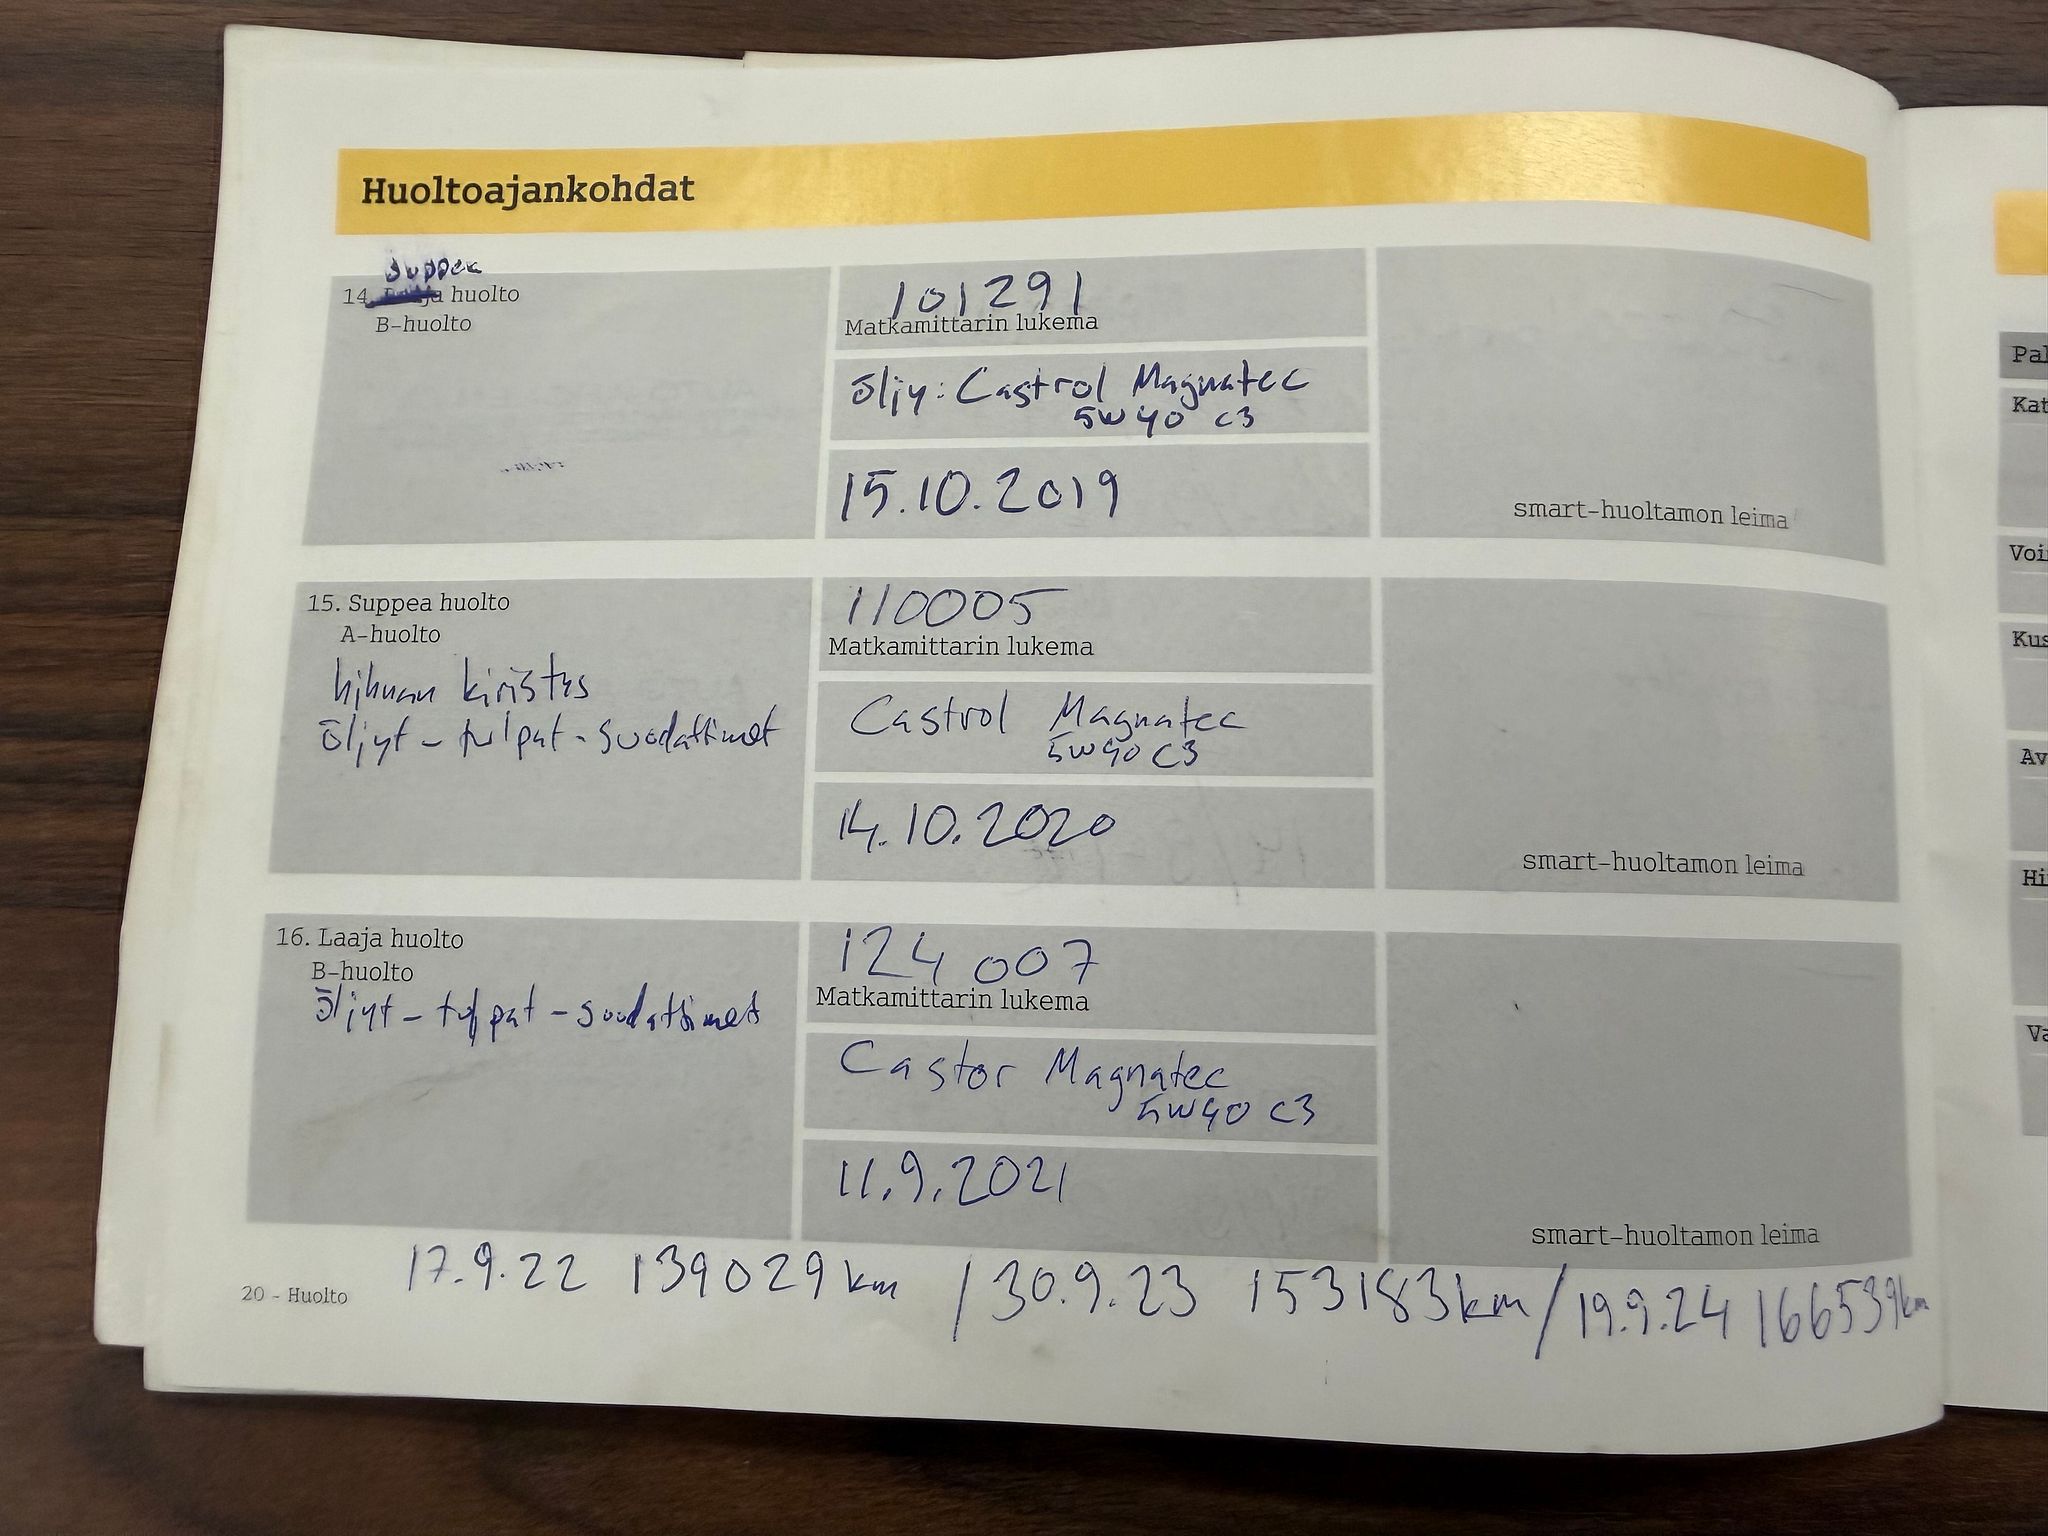 Huoltoajankohdat
Suppea
14. Laaja huolto
B-huolto
101291
Matkamittarin lukema
öljy: Castrol Magnatec
5W40 C3
15.10.2019
smart-huoltamon leima
15. Suppea huolto
A-huolto
hihnan kiristys
öljyt - tulpat - suodattimet
110005
Matkamittarin lukema
Castrol Magnatec
5W40 C3
14.10.2020
smart-huoltamon leima
16. Laaja huolto
B-huolto
öljyt - tulpat - suodattimet
124 007
Matkamittarin lukema
Castor Magnatec
5W40 C3
11.9.2021
smart-huoltamon leima
17.9.22 139029 km / 30.9.23 153183 km / 19.9.24 166539 km
20 - Huolto
Pal
Kat
Voi
Kus
Av
Hi
Va